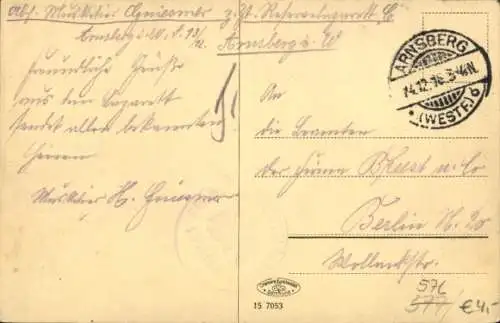 Abs. Musketier z. Zt. Reservelazarett
Arnsberg i. W.
Arnsberg i. W.
Freundliche Grüße
aus dem Lazarett
sendet allen bekannten
Herren
Musketier H.
ARNSBERG
14.12.16. 3-4N.
* (WESTF.) b
An
die Beamten
der Firma & Co
Berlin N. 20
Wollankstr.
15 7053
576
577/
€4,-